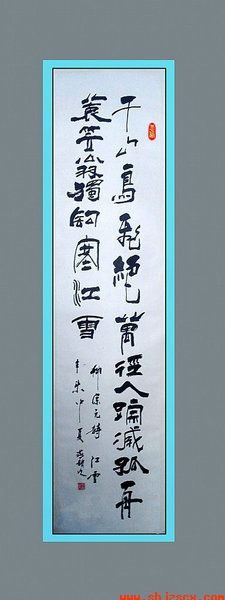 千山鳥飛絕萬徑人踪滅孤舟
蓑笠翁獨釣寒江雪
柳宗元詩 江雪
辛未仲夏